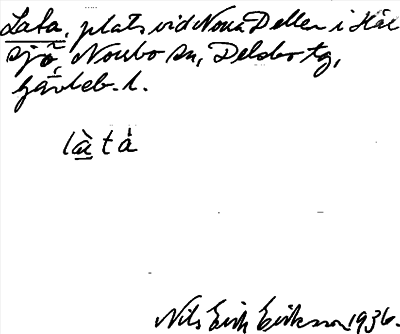 Lata, plats vid Norra Dellen i Häl
sjö, Norrbo sn, Delsbo tg,
Gävleb. l.
làtà
Nils Erik Eriksson 1936.